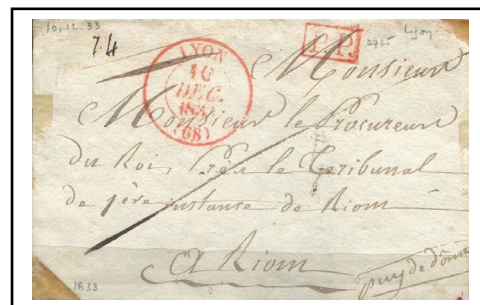 10.12.33
Lyon
7.4
P.P.
2725
LYON
16
DEC.
(68)
Monsieur
Monsieur le Procureur
du Roi, Près le Tribunal
de 1ère instance de Riom
A Riom
puy de dôme
1833